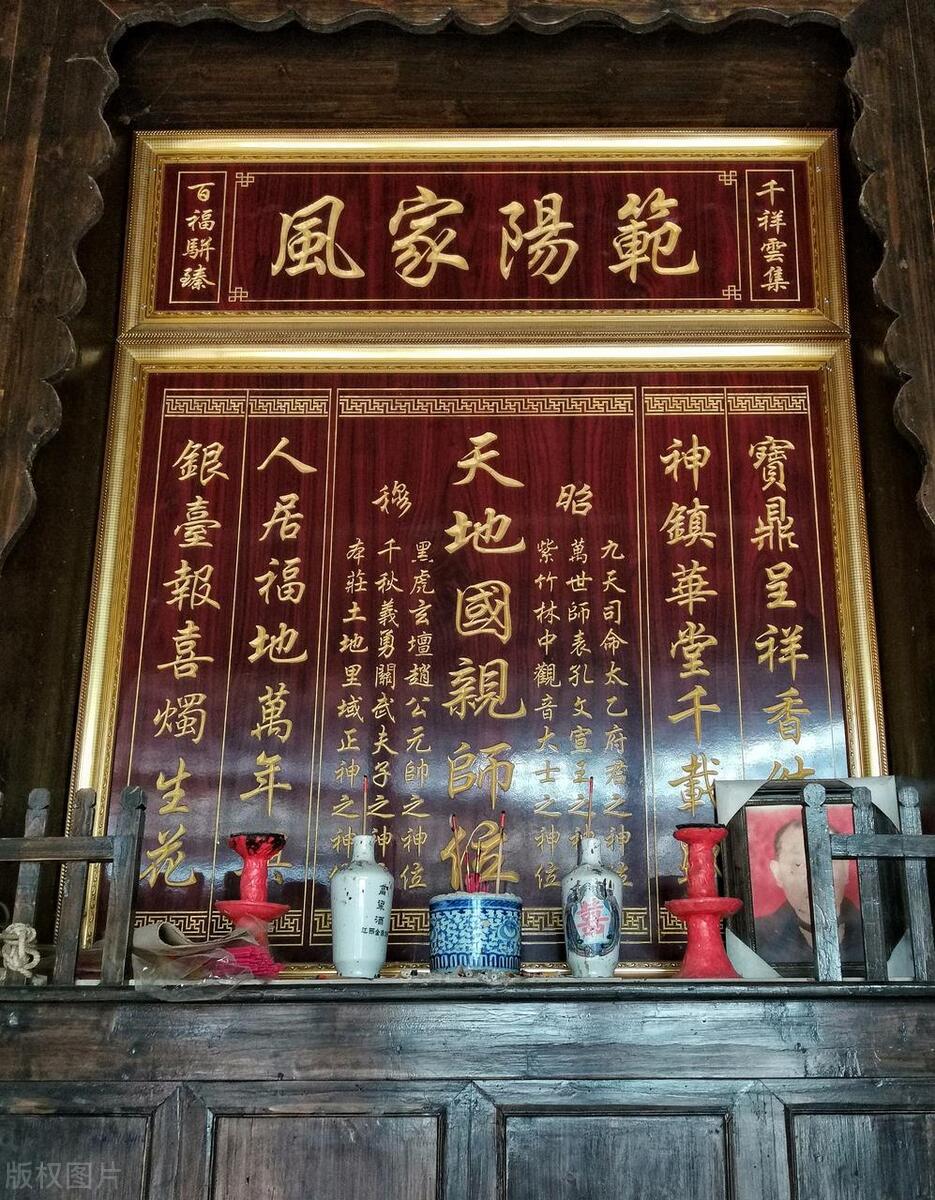 千祥雲集
範陽家風
百福駢臻
寶鼎呈祥香
神鎮華堂千載
昭
九天司命太乙府君之神位
萬世師表孔文宣王之神
紫竹林中觀音大士之神位
天地國親師位
穆
黑虎玄壇趙公元帥之神位
千秋義勇關武夫子之神
本莊土地里域正神之神
人居福地萬年
銀臺報喜燭生花
高粱酒
囍
版权图片